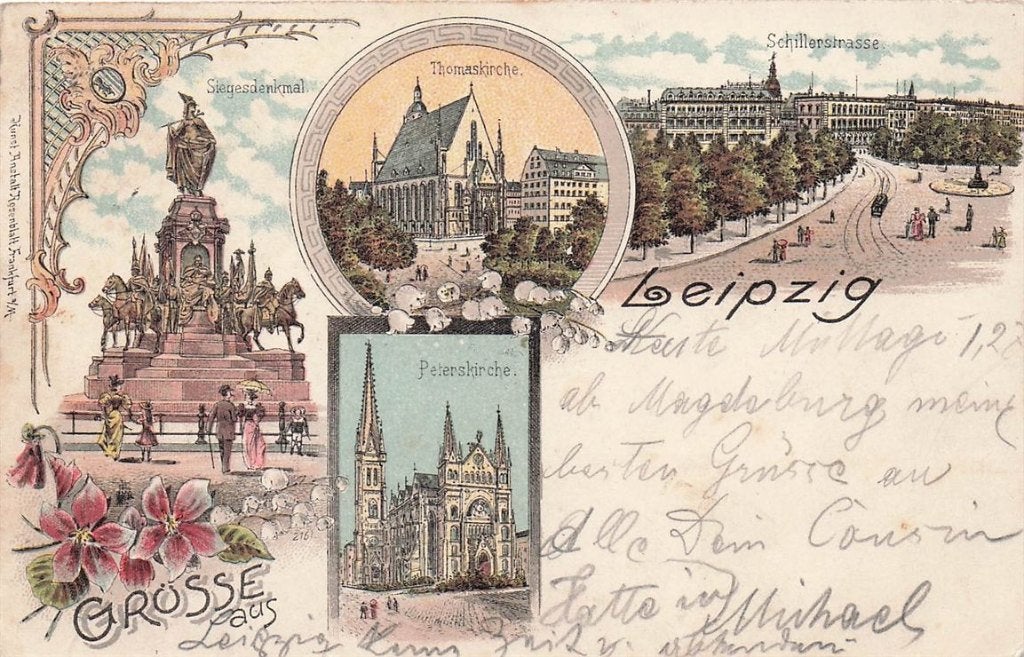 Siegesdenkmal.
Thomaskirche.
Schillerstrasse.
Leipzig
Peterskirche.
GRÜSSE
aus
Kunst Anstalt Rosenblatt, Frankfurt a/M.
216
Mittags 1,2
ab Magdeburg meine
besten Grüsse an
Alle Dein Cousin
Hatte in Michael
Leipzig kaum Zeit z.